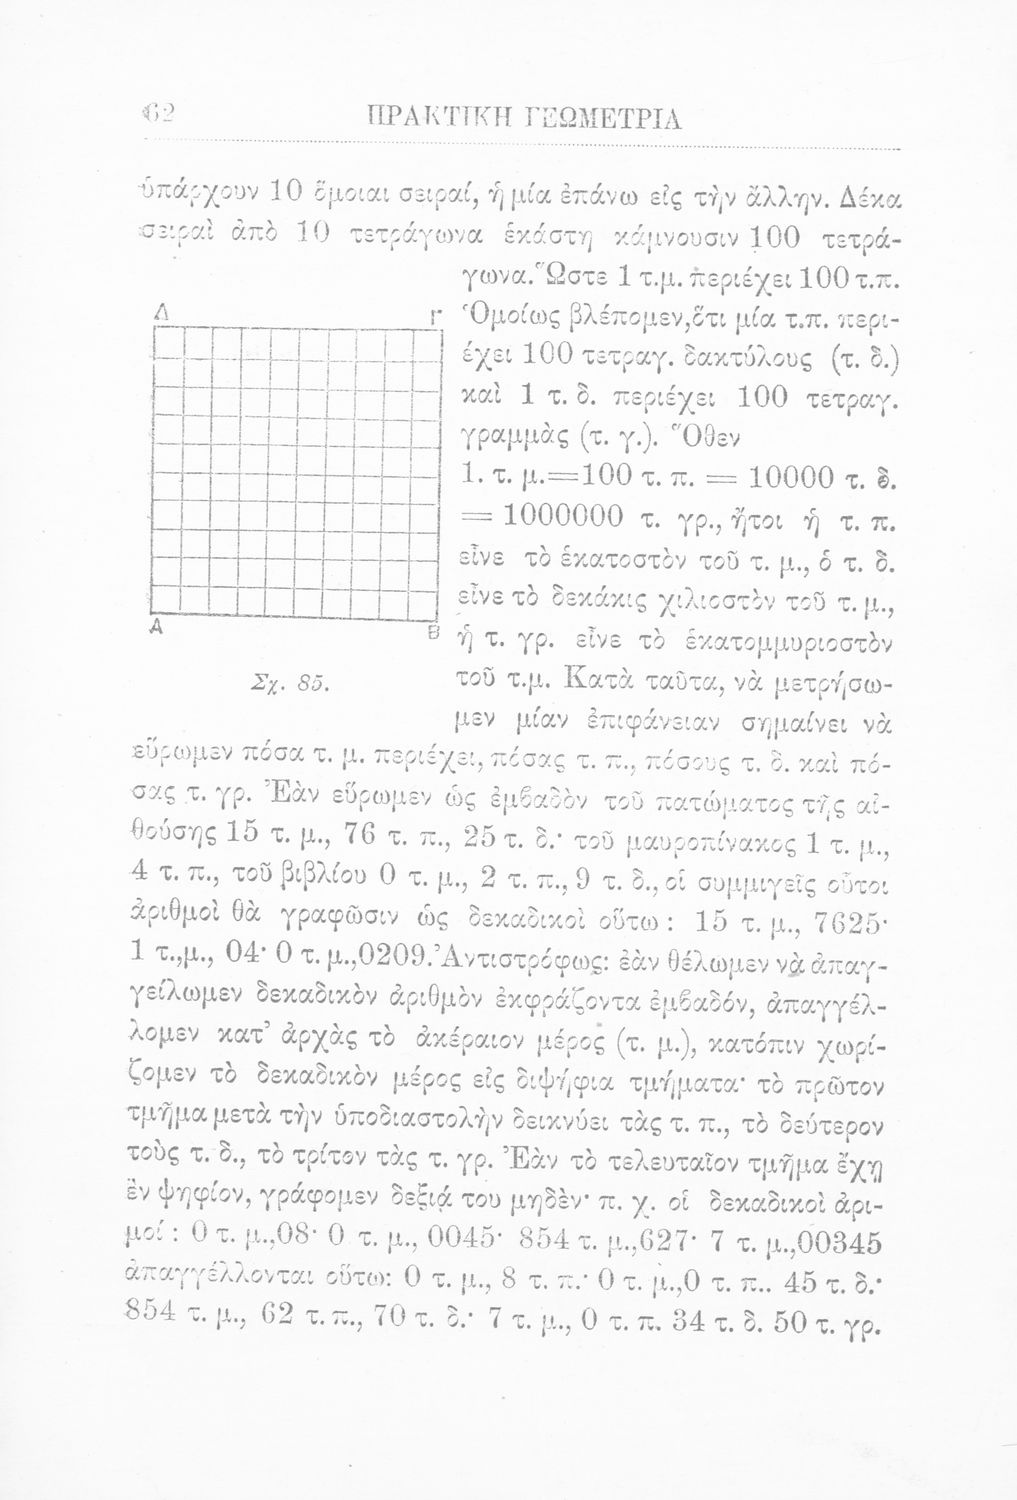 62 ΠΡΑΚΤΙΚΗ ΓΕΩΜΕΤΡΙΑ
ὑπάρχουν 10 ὅμοιαι σειραί, ἡ μία ἐπάνω εἰς τὴν ἄλλην. Δέκα
σειραὶ ἀπὸ 10 τετράγωνα ἑκάστη κάμνουσιν 100 τετρά-
γωνα. Ὥστε 1 τ.μ. περιέχει 100 τ.π.
Ὁμοίως βλέπομεν, ὅτι μία τ.π. περι-
έχει 100 τετραγ. δακτύλους (τ. δ.)
καὶ 1 τ. δ. περιέχει 100 τετραγ.
γραμμὰς (τ. γ.). Ὅθεν
1. τ. μ.=100 τ. π. = 10000 τ. δ.
= 1000000 τ. γρ., ἤτοι ἡ τ. π.
εἶνε τὸ ἑκατοστὸν τοῦ τ. μ., ὁ τ. δ.
εἶνε τὸ δεκάκις χιλιοστὸν τοῦ τ. μ.,
ἡ τ. γρ. εἶνε τὸ ἑκατομμυριοστὸν
τοῦ τ.μ. Κατὰ ταῦτα, νὰ μετρήσω-
μεν μίαν ἐπιφάνειαν σημαίνει νὰ
Δ Γ
Α Β
Σχ. 85.
εὕρωμεν πόσα τ. μ. περιέχει, πόσας τ. π., πόσους τ. δ. καὶ πό-
σας τ. γρ. Ἐὰν εὕρωμεν ὡς ἐμβαδὸν τοῦ πατώματος τῆς αἰ-
θούσης 15 τ. μ., 76 τ. π., 25 τ. δ.· τοῦ μαυροπίνακος 1 τ. μ.,
4 τ. π., τοῦ βιβλίου 0 τ. μ., 2 τ. π., 9 τ. δ., οἱ συμμιγεῖς οὗτοι
ἀριθμοὶ θὰ γραφῶσιν ὡς δεκαδικοὶ οὕτω : 15 τ. μ., 7625·
1 τ.,μ., 04· 0 τ. μ.,0209. Ἀντιστρόφως: ἐὰν θέλωμεν νὰ ἀπαγ-
γείλωμεν δεκαδικὸν ἀριθμὸν ἐκφράζοντα ἐμβαδόν, ἀπαγγέλ-
λομεν κατ’ ἀρχὰς τὸ ἀκέραιον μέρος (τ. μ.), κατόπιν χωρί-
ζομεν τὸ δεκαδικὸν μέρος εἰς διψήφια τμήματα· τὸ πρῶτον
τμῆμα μετὰ τὴν ὑποδιαστολὴν δεικνύει τὰς τ. π., τὸ δεύτερον
τοὺς τ. δ., τὸ τρίτον τὰς τ. γρ. Ἐὰν τὸ τελευταῖον τμῆμα ἔχῃ
ἓν ψηφίον, γράφομεν δεξιά του μηδὲν· π. χ. οἱ δεκαδικοὶ ἀρι-
μοί : 0 τ. μ.,08· 0 τ. μ., 0045· 854 τ. μ.,627· 7 τ. μ.,00345
ἀπαγγέλλονται οὕτω: 0 τ. μ., 8 τ. π.· 0 τ. μ.,0 τ. π.. 45 τ. δ.·
854 τ. μ., 62 τ. π., 70 τ. δ.· 7 τ. μ., 0 τ. π. 34 τ. δ. 50 τ. γρ.